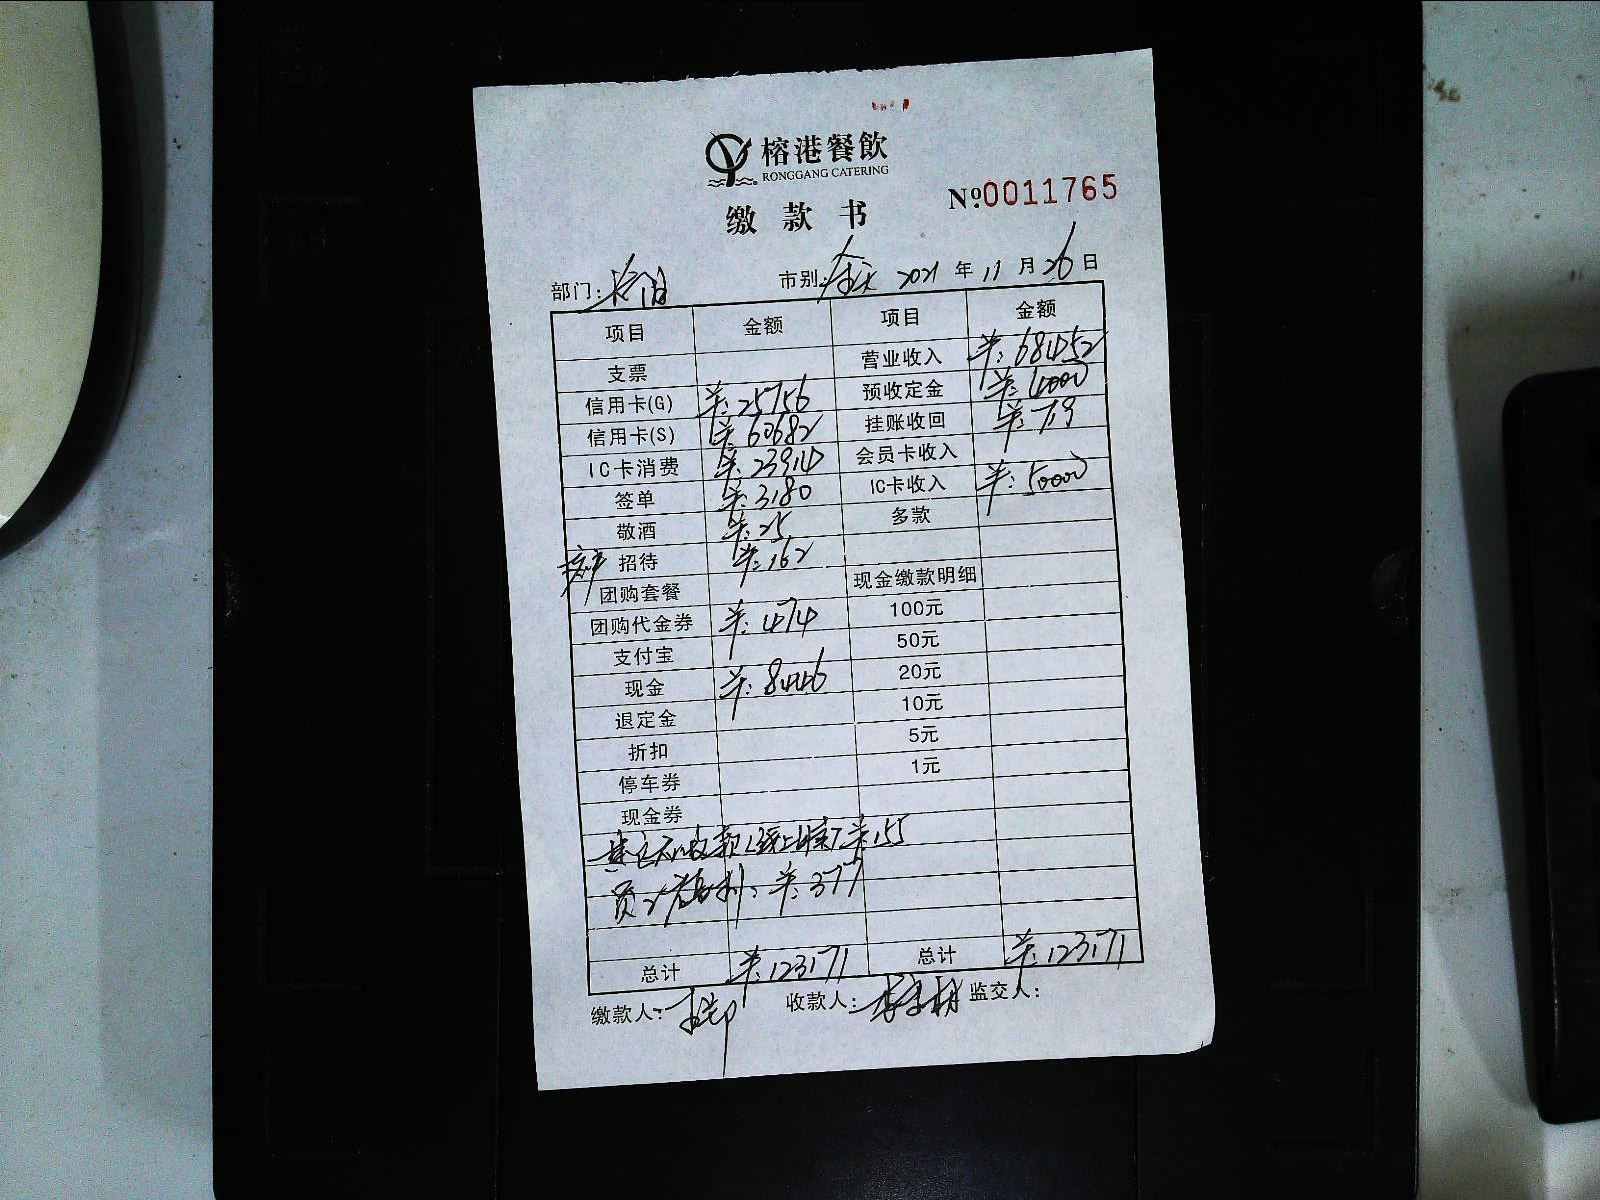 榕港餐飲
RONGGANG CATERING
缴款书
Nº0011765
部门: 市别:全天 2021年11月26日
项目 金额 项目 金额
支票 营业收入 ¥:68452
信用卡(G) ¥:25756 预收定金 ¥:4000
信用卡(S) ¥:60682 挂账收回 ¥:719
IC卡消费 ¥:23914 会员卡收入
签单 ¥:3180 IC卡收入 ¥:50000
敬酒 ¥:25 多款
招待 ¥:162
团购套餐 现金缴款明细
团购代金券 ¥:474 100元
支付宝 50元
现金 ¥:8446 20元
退定金 10元
折扣 5元
停车券 1元
现金券
其它应收款 ¥155
员工福利: ¥:377
总计 ¥:123171 总计 ¥:123171
缴款人: 收款人: 监交人: